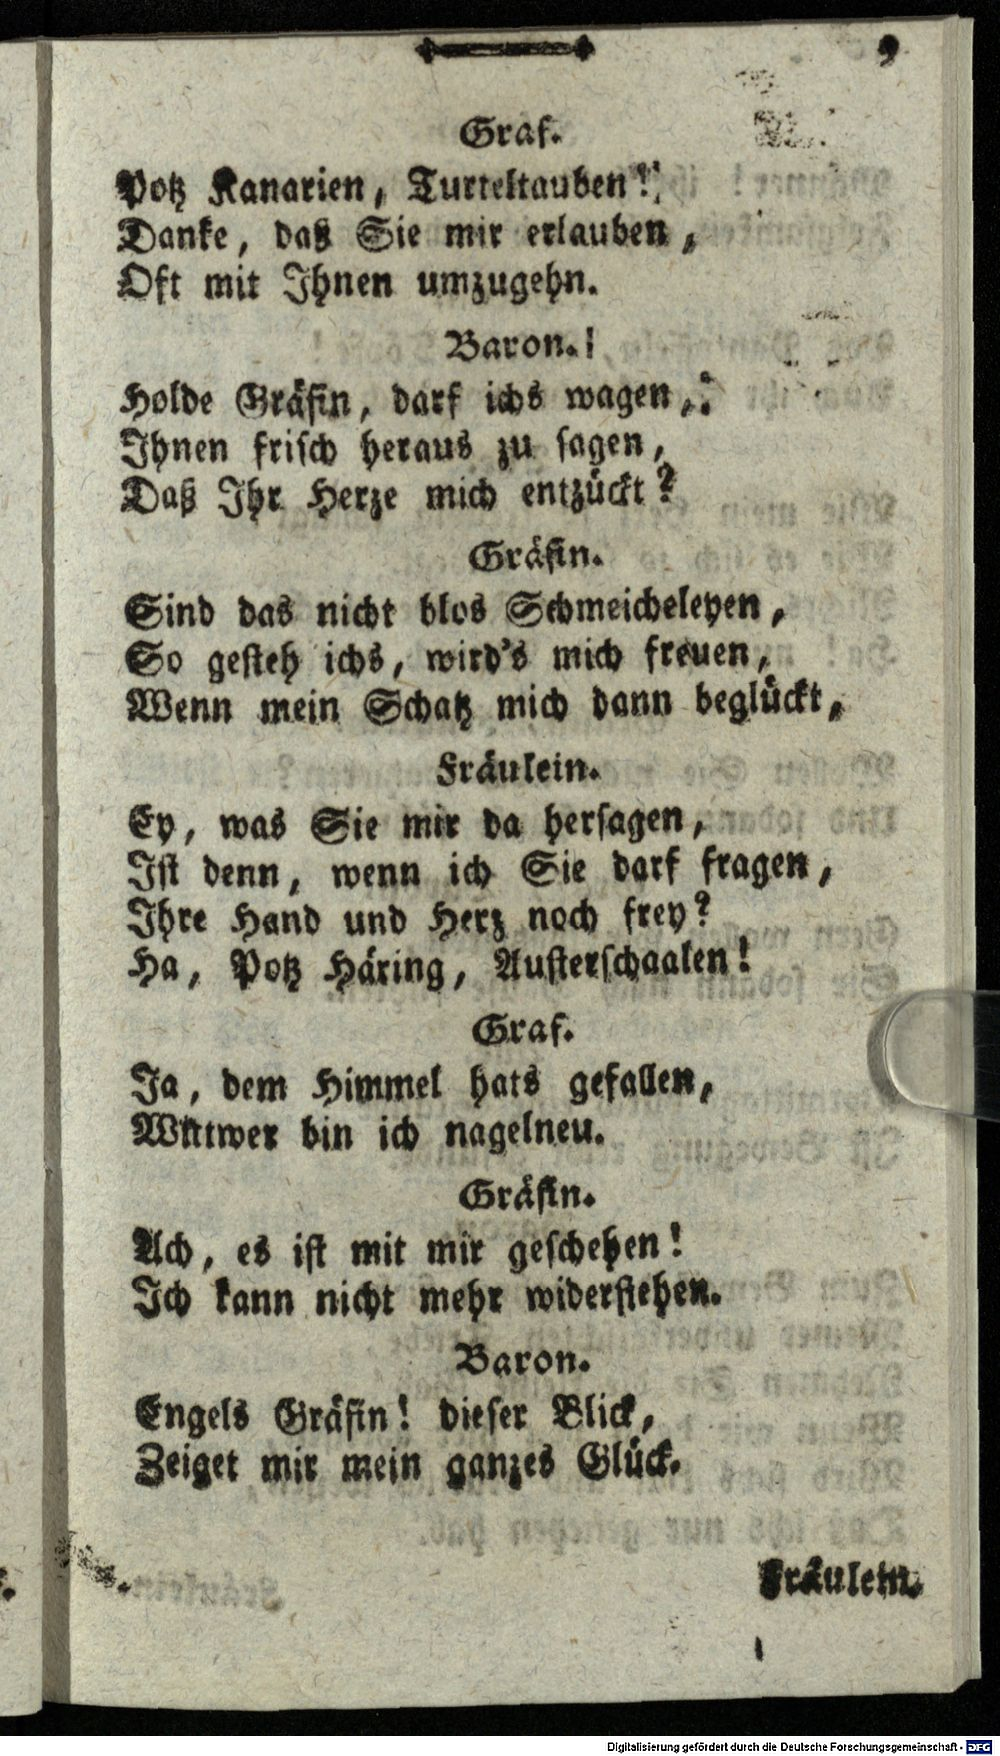 9
Graf.
Potz Kanarien, Turteltauben!
Danke, daß Sie mir erlauben,
Oft mit Ihnen umzugehn.
Baron.
Holde Gräfin, darf ichs wagen,
Ihnen frisch heraus zu sagen,
Daß Ihr Herze mich entzückt?
Gräfin.
Sind das nicht blos Schmeicheleyen,
So gesteh ichs, wird's mich freuen,
Wenn mein Schatz mich dann beglückt,
Fräulein.
Ey, was Sie mir da hersagen,
Ist denn, wenn ich Sie darf fragen,
Ihre Hand und Herz noch frey?
Ha, Potz Häring, Austerschaalen!
Graf.
Ja, dem Himmel hats gefallen,
Wittwer bin ich nagelneu.
Gräfin.
Ach, es ist mit mir geschehen!
Ich kann nicht mehr widerstehen.
Baron.
Engels Gräfin! dieser Blick,
Zeiget mir mein ganzes Glück.
Fräulein.
Digitalisierung gefördert durch die Deutsche Forschungsgemeinschaft - DFG